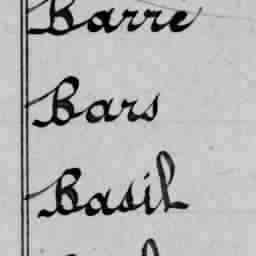 Barre
Bars
Basil